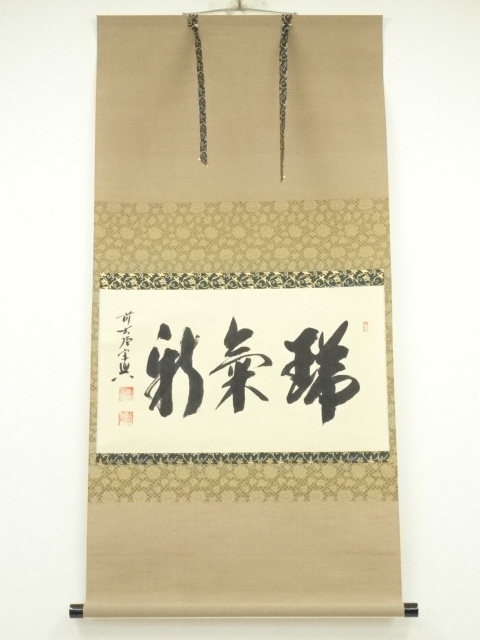 瑞氣新
前大徳宗興